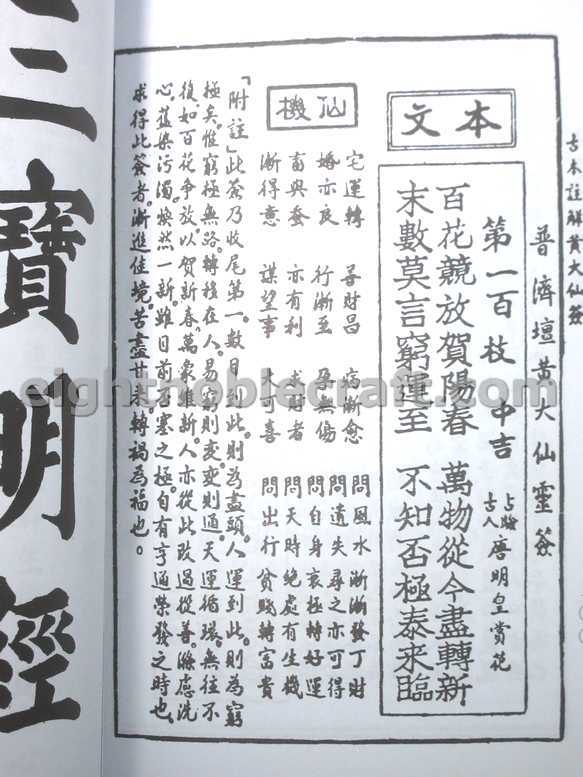 古本註解黃大仙簽
普濟壇黃大仙靈簽
本文
第一百枝 中吉 古人占驗 唐明皇賞花
百花競放賀陽春 萬物從今盡轉新
末數莫言窮運至 不知否極泰來臨
仙機
宅運轉 喜財昌 病漸愈
婚亦良 行漸至 孕無傷
畜與蚕 亦有利 求財者
漸得意 謀望事 大可喜
問風水漸漸發丁財
問遺失尋之亦可得
問自身衰極轉好運
問天時絕處有生機
問出行貧賤轉富貴
「附註」此簽乃收尾第一。數目到此。則為盡頭。人運到此。則為窮
極矣。惟窮極無路。轉移在人。易窮則變。變則通。天運循環。無往不
復。如百花爭放。以賀新春。萬象維新。人亦從此改過從善。滌慮洗
心。舊染污濁。煥然一新。雖目前否塞之極。自有亨通榮發之時也。
求得此簽者。漸進佳境。苦盡甘來。轉禍為福也。
三寶明經
eightnoblecraft.com